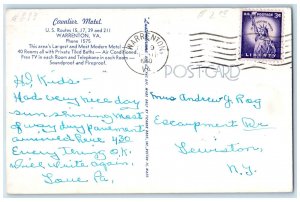 Cavalier Motel
U. S. Routes 15, 17, 29 and 211
WARRENTON, VA.
Phone 1575
This area's Largest and Most Modern Motel
40 Rooms all with Private Tiled Baths — Air-Conditioned
Free TV in each Room and Telephone in each Room —
Soundproof and Fireproof.
WARRENTON
1960
VA.
U.S. POSTAGE 3¢
LIBERTY
POST CARD
Hi Kids:
Had very nice day
sun shining most
of way day pavement
arrived here 4:30
Every Thing O.K.
will write again
Love Pa,
Mrs Andrew J. Rog
Escarpment Dr
Lewiston
N.Y.